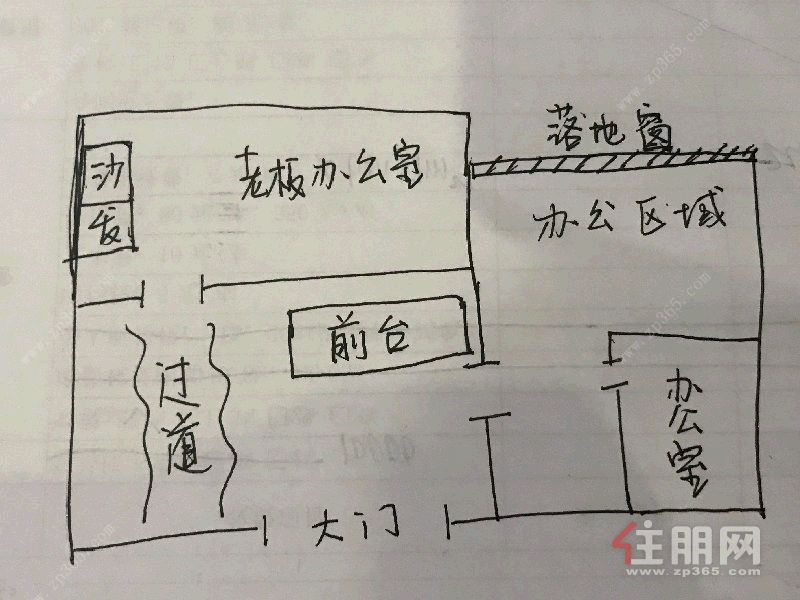 落地窗
老板办公室
沙发
办公区域
前台
过道
办公室
大门
住朋网
www.zp365.com